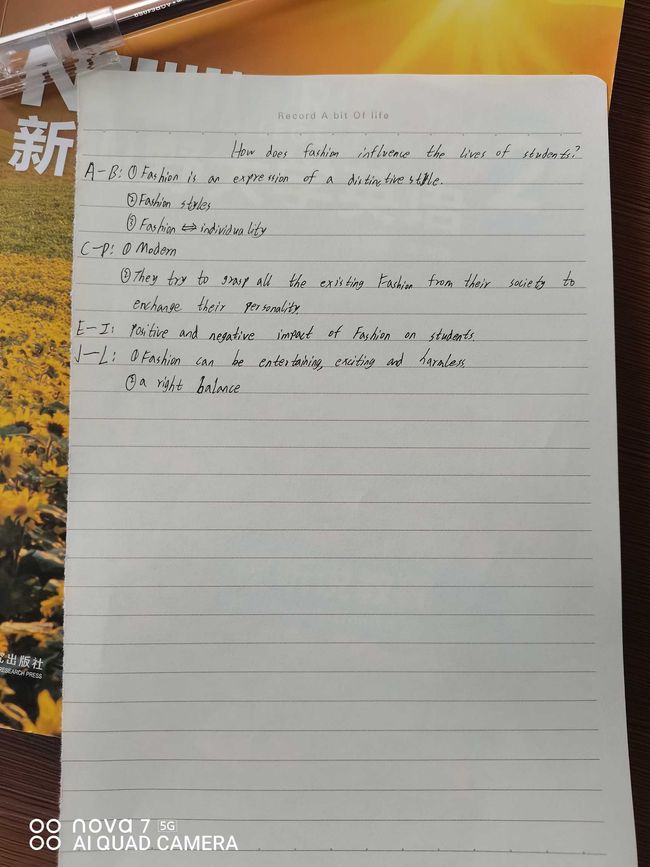 新
Record A bit Of life
How does fashion influence the lives of students?
A-B: ① Fashion is an expression of a distinctive style.
② Fashion styles
③ Fashion ⇔ individuality
C-P: ① Modern
② They try to grasp all the existing Fashion from their society to
enchange their personality.
E-I: positive and negative impact of Fashion on students.
J-L: ① Fashion can be entertaining, exciting and harmless.
② a right balance
出版社
RESEARCH PRESS
nova 7 5G
AI QUAD CAMERA